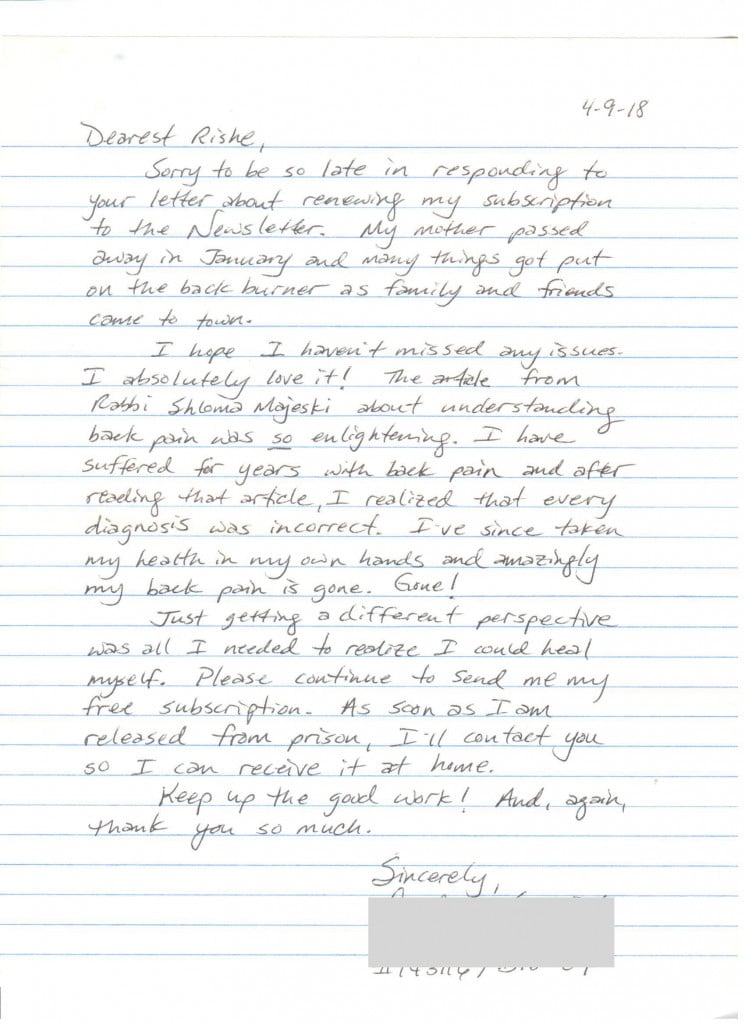 4-9-18
Dearest Rishe,
Sorry to be so late in responding to
your letter about renewing my subscription
to the Newsletter. My mother passed
away in January and many things got put
on the back burner as family and friends
came to town.
I hope I haven't missed any issues.
I absolutely love it! The article from
Rabbi Shloma Majeski about understanding
back pain was so enlightening. I have
suffered for years with back pain and after
reading that article, I realized that every
diagnosis was incorrect. I've since taken
my health in my own hands and amazingly
my back pain is gone. Gone!
Just getting a different perspective
was all I needed to realize I could heal
myself. Please continue to send me my
free subscription. As soon as I am
released from prison, I'll contact you
so I can receive it at home.
Keep up the good work! And, again,
thank you so much.
Sincerely,